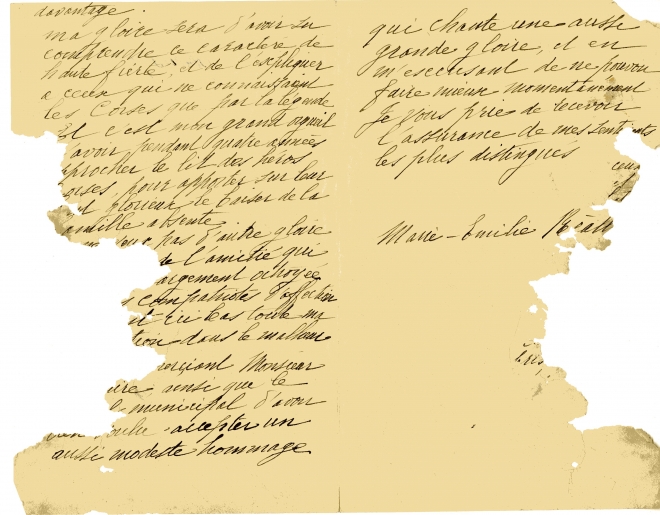 davantage.
ma gloire sera d'avoir su
comprendre ce caractère de
haute fierté, et de l'expliquer
à ceux qui ne connaissaient
les Corses que par la légende
Et c'est mon grand orgueil
d'avoir, pendant quatre années
approcher le lit des héros
Corses, pour apporter sur leur
glorieux le baiser de la
famille absente.
pas d'autre gloire
de l'amitié qui
largement octroyée
compatriotes d'affection
ici bas toute ma
tion dans le malheur
erciant Monsieur
ire ainsi que le
l municipal d'avoir
bien voulu accepter un
aussi modeste hommage
qui chante une aussi
grande gloire, et en
m'escusant de ne pouvoir
faire mieux momentanément
Je vous prie de recevoir
l'assurance de mes sentiments
les plus distingués
Marie-Emilie